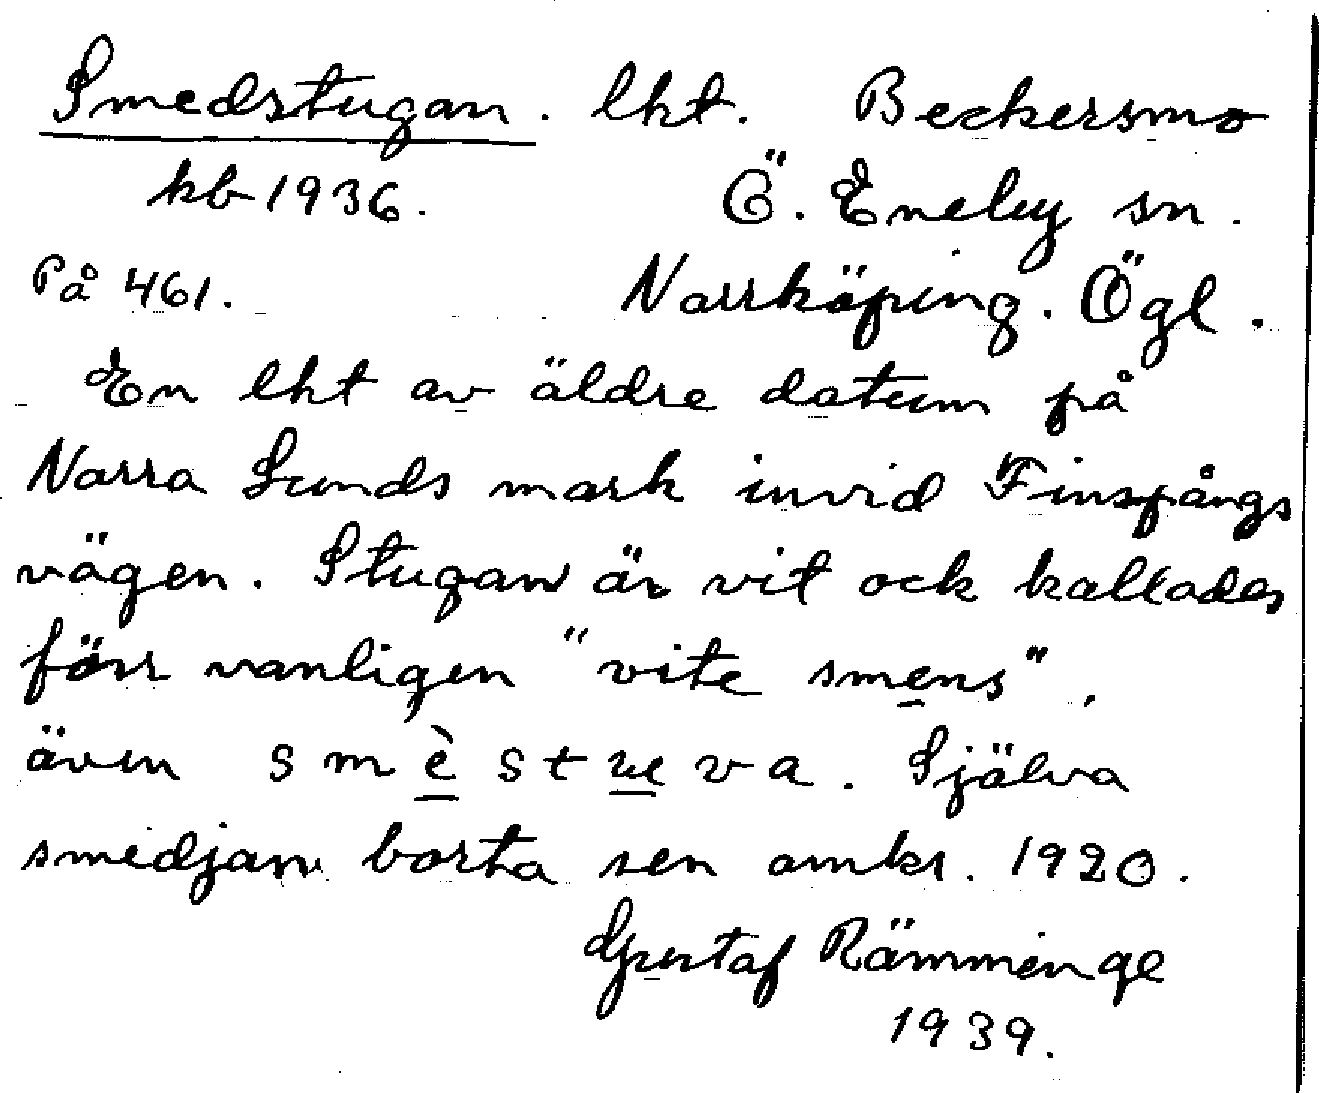 Smedstugan. lht. Beckersmo
kb 1936. Ö. Eneby sn.
På 461. Norrköping. Ögl.
En lht av äldre datum på
Norra Sunds mark invid Finspångs
vägen. Stugan är vit ock kallades
förr vanligen "vite smens",
även smèstueva. Själva
smedjan borta sen omkr. 1920.
Gustaf Rämminge
1939.